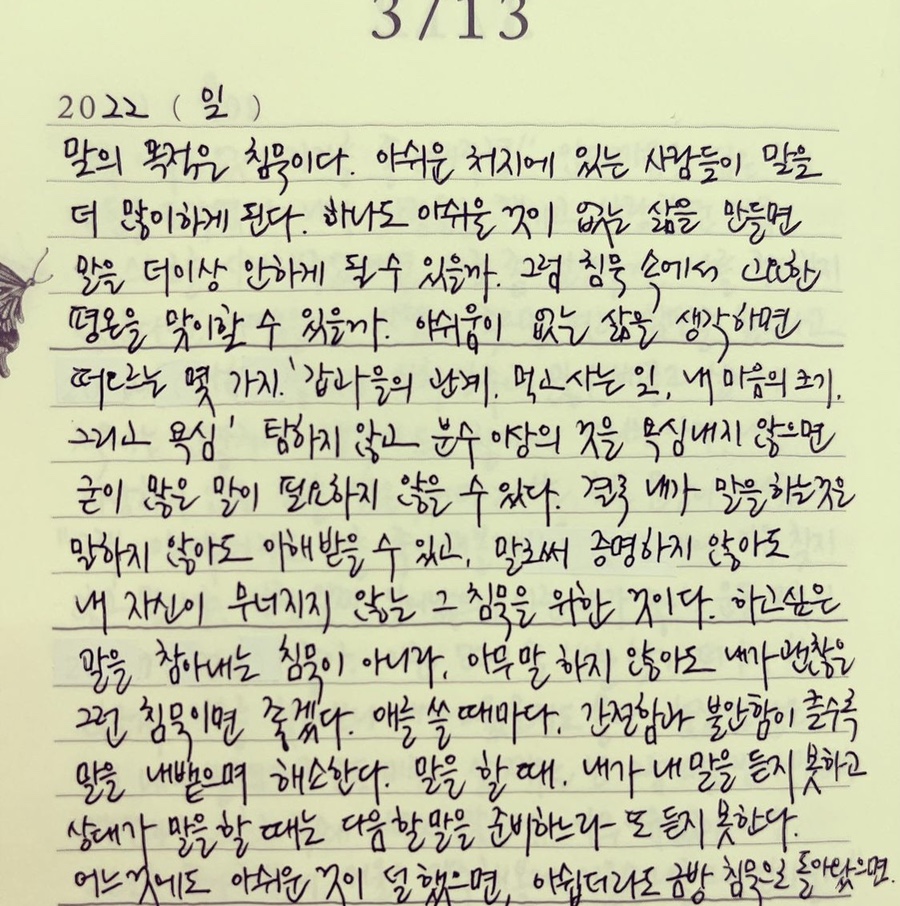 3/13
2022 ( 일 )
말의 목적은 침묵이다. 아쉬운 처지에 있는 사람들이 말을
더 많이하게 된다. 하나도 아쉬울 것이 없는 삶을 만들면
말을 더이상 안하게 될 수 있을까. 그럼 침묵 속에서 고요한
평온을 맞이할 수 있을까. 아쉬움이 없는 삶을 생각하면
떠오르는 몇 가지. '갑과 을의 관계. 먹고 사는 일, 내 마음의 크기,
그리고 욕심' 탐하지 않고 분수 이상의 것을 욕심내지 않으면
굳이 많은 말이 필요하지 않을 수 있다. 결국 내가 말을 하는것은
말하지 않아도 이해받을 수 있고, 말로써 증명하지 않아도
내 자신이 무너지지 않는 그 침묵을 위한 것이다. 하고싶은
말을 참아내는 침묵이 아니라, 아무말 하지 않아도 내가 괜찮을
그런 침묵이면 좋겠다. 애를 쓸 때마다, 간절함과 불안함이 클수록
말을 내뱉으며 해소한다. 말을 할 때, 내가 내 말을 듣지 못하고
상대가 말을 할 때는 다음 할 말을 준비하느라 또 듣지 못한다.
어느 것에도 아쉬운 것이 덜 했으면, 아쉽더라도 금방 침묵으로 돌아왔으면.